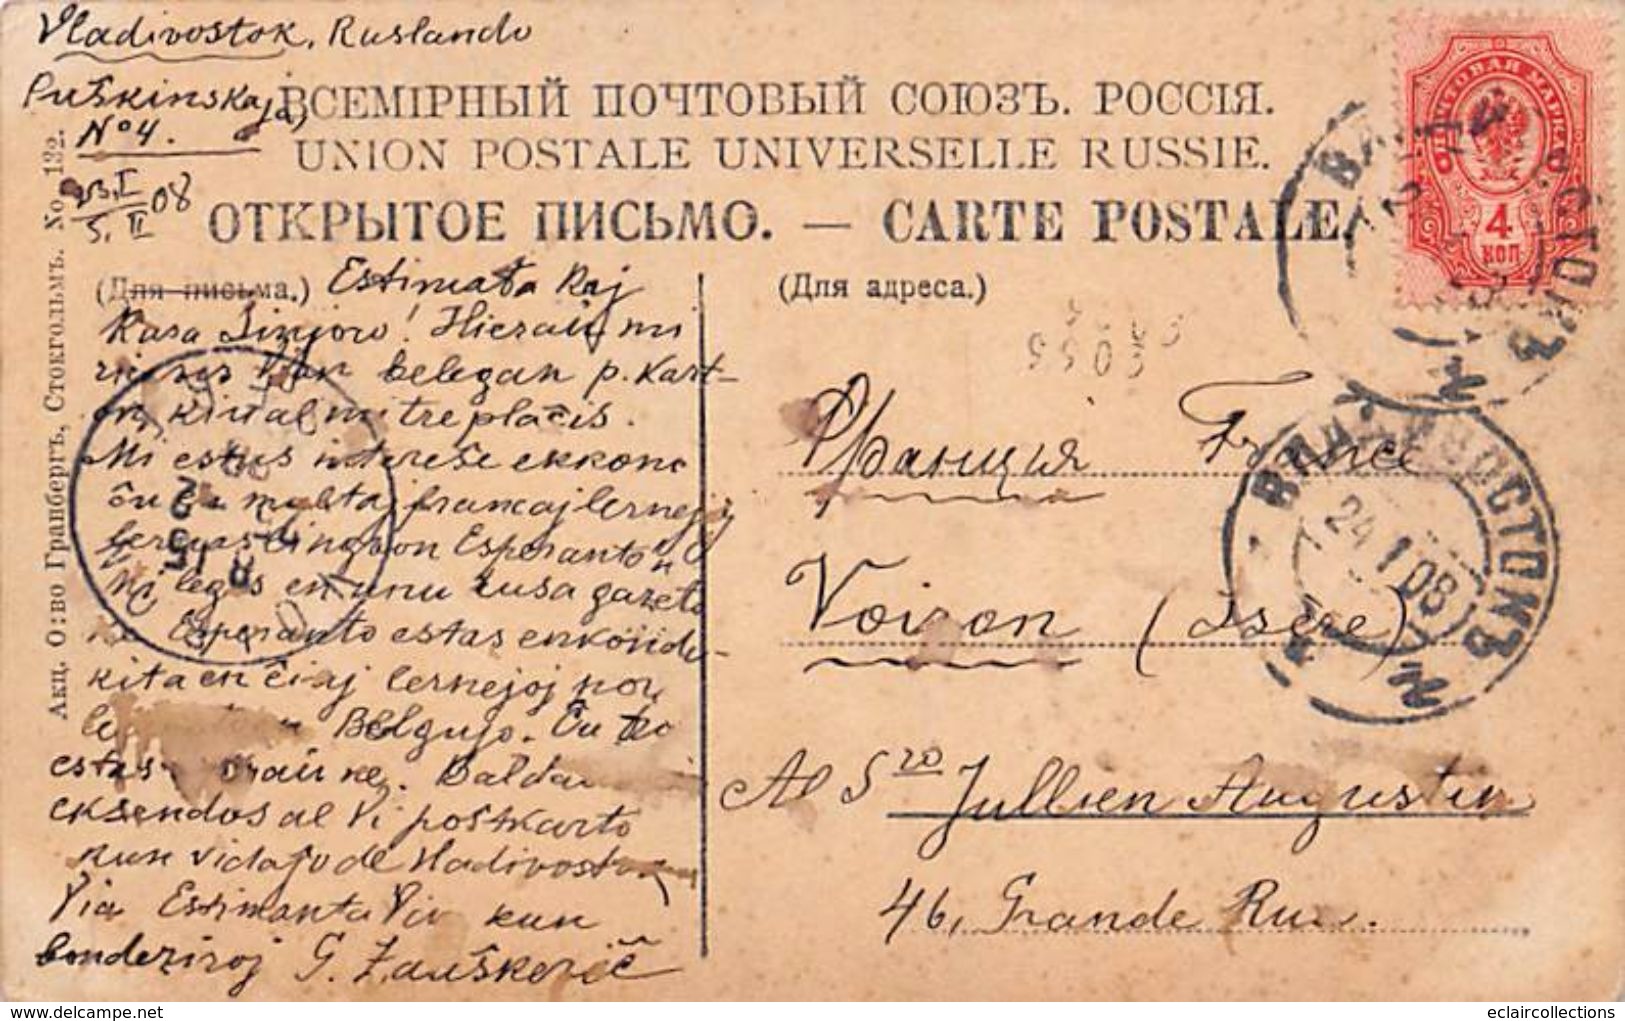 Vladivostok, Ruslando
Puŝkinskaja,
No 4.
23.I
5.II 08
ВСЕМІРНЫЙ ПОЧТОВЫЙ СОЮЗЪ. РОССІЯ.
UNION POSTALE UNIVERSELLE RUSSIE.
ОТКРЫТОЕ ПИСЬМО. — CARTE POSTALE.
Акц. О:во Гранбергъ, Стокгольмъ. No. 132.
(Для письма.)
Estimata kaj
kara Sinjoro! Hieraŭ mi
ricevis Vian belegan p. kart-
on, kiu al mi tre plaĉis.
Mi estus interese ekkono
ĉu en multaj francaj lernejoj
lernas lingvon Esperanto'n
Mi legis en unu rusa gazeto
ke Esperanto estas enkondu-
kita en ĉiaj lernejoj
Belgujo. Ĉu tio
estas ne. Baldaŭ
eksendos al Vi poŝtkarto
kun vidajo de Vladivostok
Via Estimanta Vin kun
bondeziroj G.
(Для адреса.)
Франція France
Voiron (Isère)
Al Sro Jullien Augustin
46, Grande Rue.
ПОЧТОВАЯ МАРКА
4
КОП
ВЛАДИВОСТОКЪ
24 1 08
© delcampe.net
eclaircollections